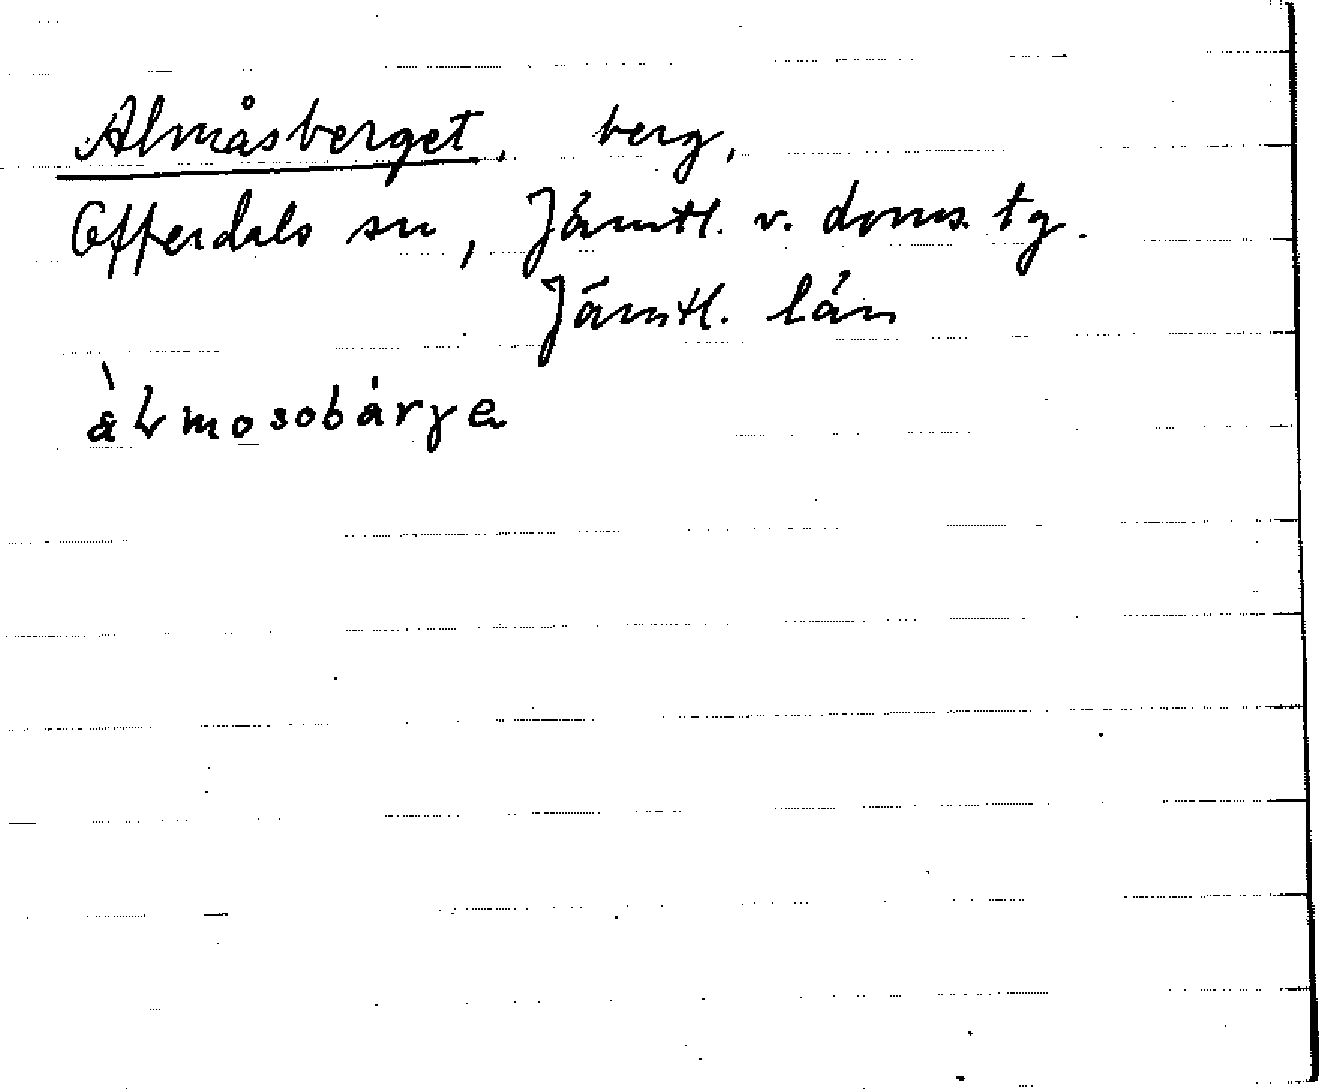 Almåsberget, berg,
Offerdals sn, Jämtl. v. doms. tg.
Jämtl. län
àlmosobárye